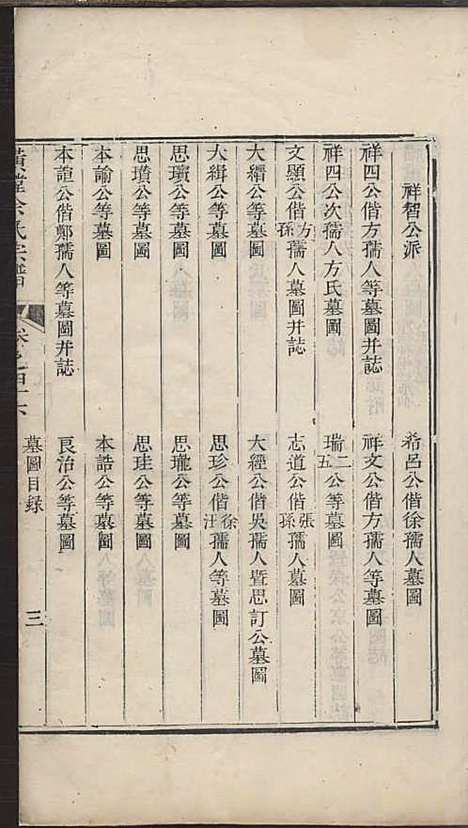 祥智公派
希呂公偕徐孺人墓圖
祥四公偕方孺人等墓圖并誌
祥文公偕方孺人等墓圖
祥四公次孺人方氏墓圖
瑞二五公等墓圖
文顯公偕方孫孺人墓圖并誌
志道公偕張孫孺人墓圖
大縉公等墓圖
大經公偕吳孺人暨思訂公墓圖
大緝公等墓圖
思珍公偕徐汪孺人等墓圖
思瓆公等墓圖
思瓏公等墓圖
思璝公等墓圖
思珪公等墓圖
本諭公等墓圖
本誥公等墓圖
本誼公偕鄭孺人等墓圖并誌
良治公等墓圖
余氏宗譜
墓圖目錄
三